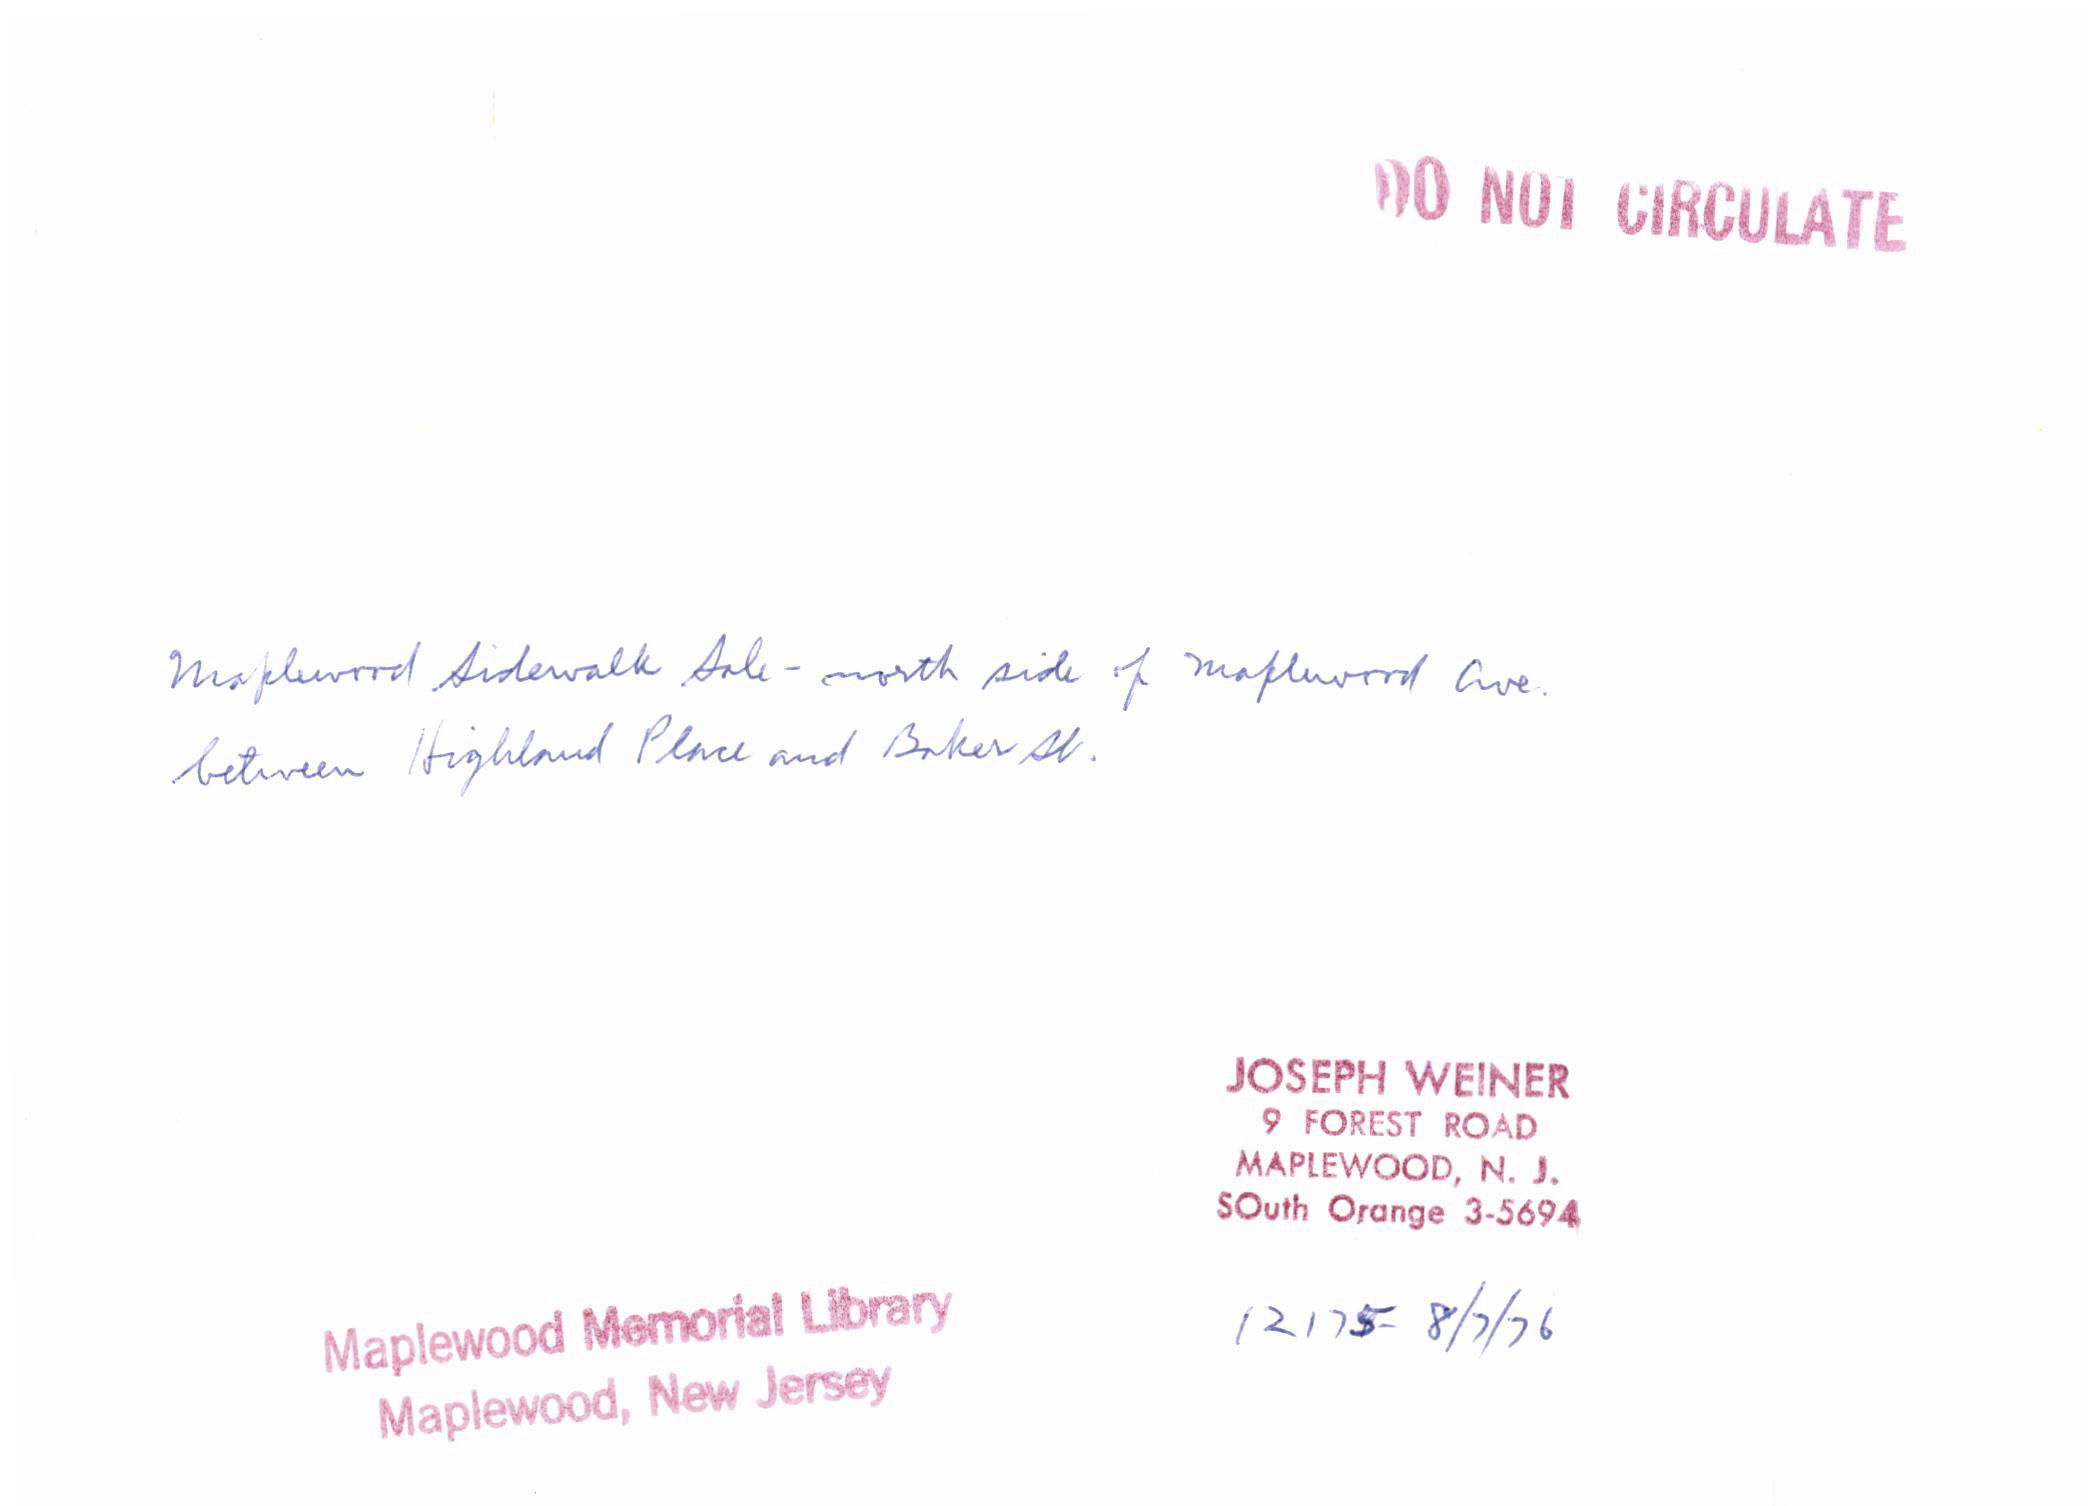 DO NOT CIRCULATE
Maplewood Sidewalk Sale - north side of Maplewood Ave.
between Highland Place and Baker St.
JOSEPH WEINER
9 FOREST ROAD
MAPLEWOOD, N. J.
SOuth Orange 3-5694
12175- 8/7/76
Maplewood Memorial Library
Maplewood, New Jersey